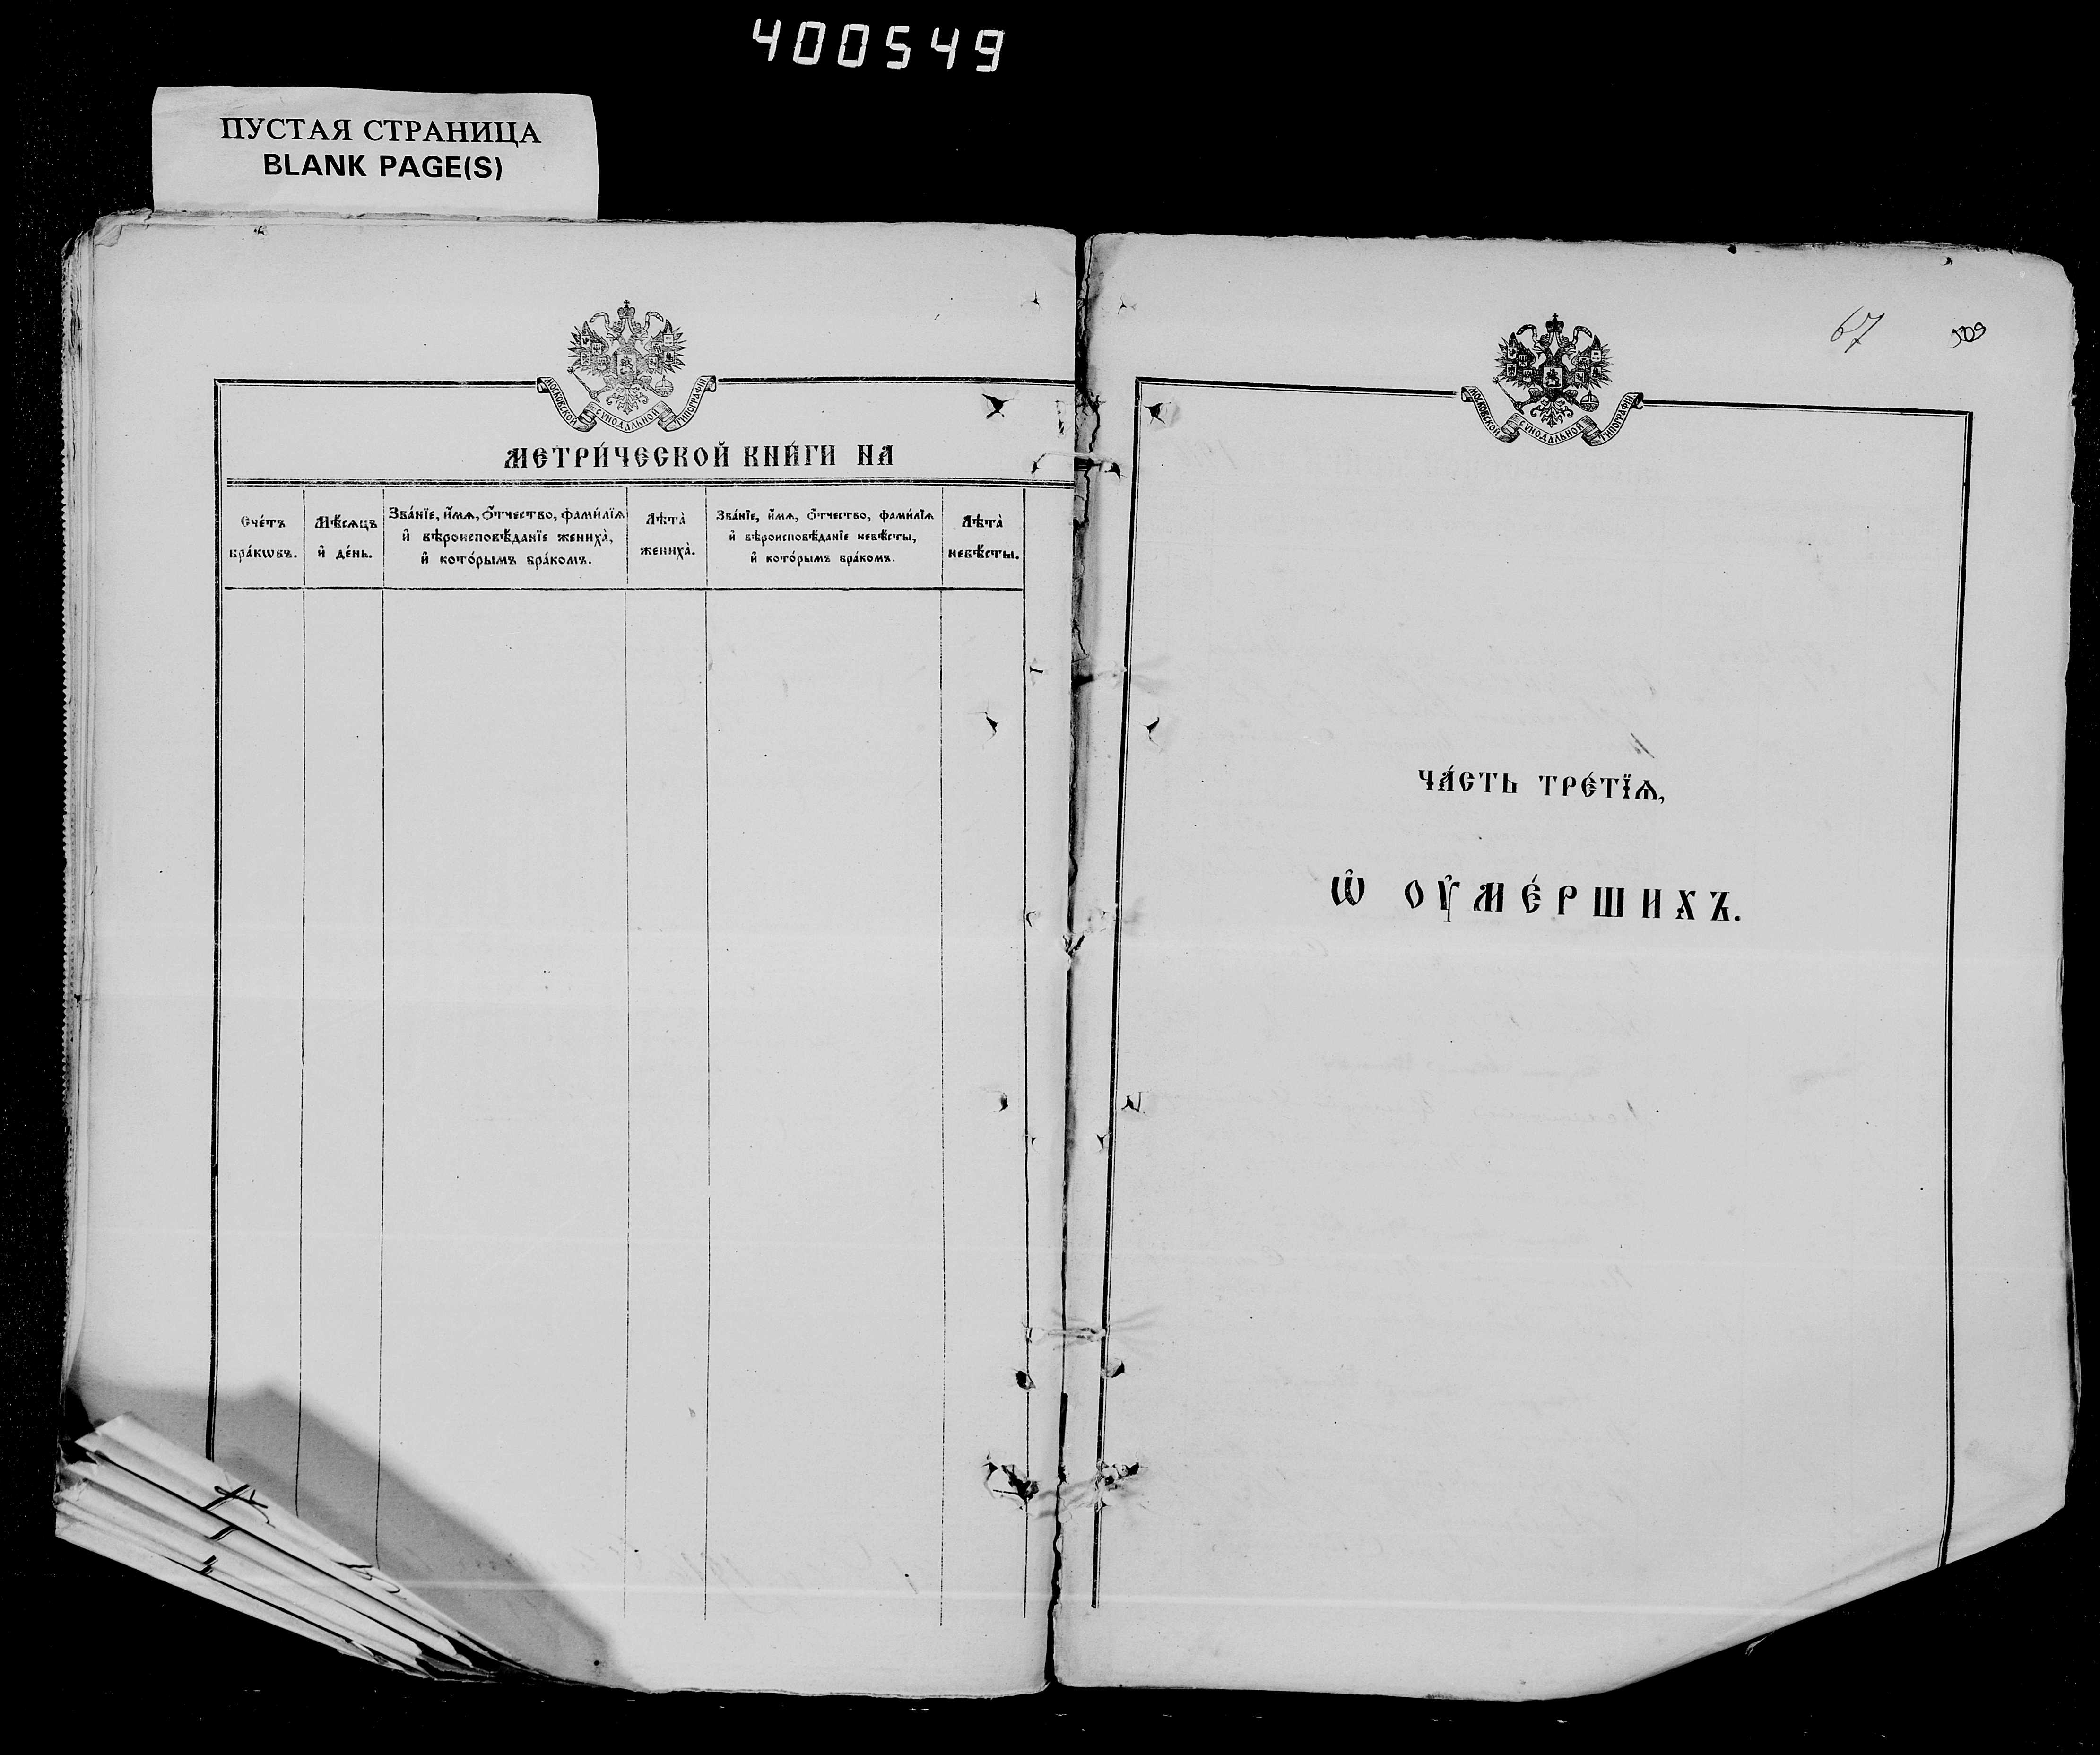 400549
ПУСТАЯ СТРАНИЦА
BLANK PAGE(S)
МОСКОВСКОЙ СѴНОДАЛЬНОЙ ТИПОГРАФІИ
МЕТРИ́ЧЕСКОЙ КНИ́ГИ НА
Сче́тъ
бра́кѡвъ.
Мѣ́сѧцъ
и҆ де́нь.
Зва́нїе, и҆́мѧ, ѻ҆́тчество, фами́лїѧ
и҆ вѣроисповѣ́данїе жениха̀,
и҆ кото́рымъ бра́комъ.
Лѣта̀
жениха̀.
Зва́нїе, и҆́мѧ, ѻ҆́тчество, фами́лїѧ
и҆ вѣроисповѣ́данїе невѣ́сты,
и҆ кото́рымъ бра́комъ.
Лѣта̀
невѣ́сты.
67
МОСКОВСКОЙ СѴНОДАЛЬНОЙ ТИПОГРАФІИ
ЧА́СТЬ ТРЕ́ТЇѦ,
Ѡ҆ ОУ҆МЕ́РШИХЪ.